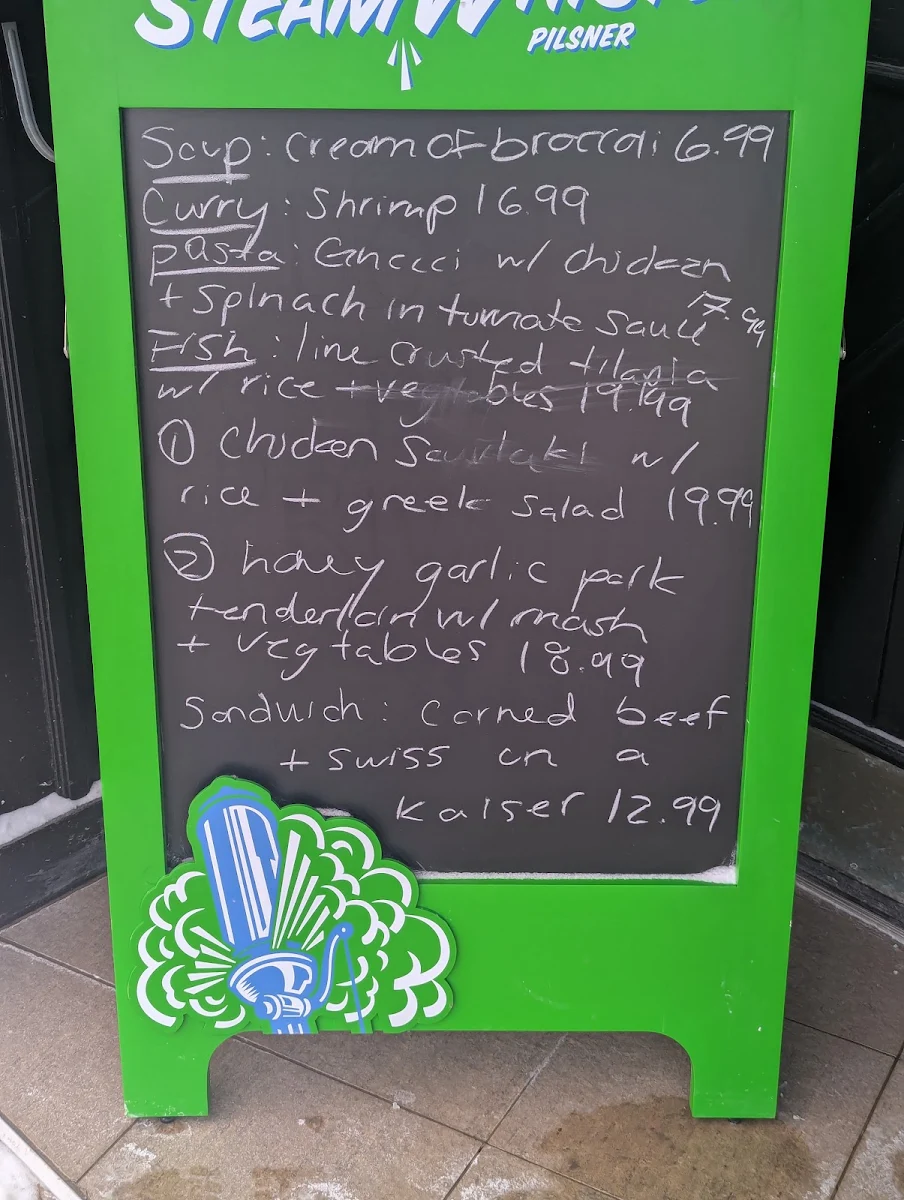 STEAMWHISTLE
PILSNER
Soup: cream of broccoi 6.99
Curry: Shrimp 16.99
pasta: Gnocci w/ chicken
+ spinach in tomato sauce 17.99
Fish: lime crusted tilapia
w/ rice + vegtables 19.99
① chicken Souvlaki w/
rice + greek salad 19.99
② honey garlic pork
tenderloin w/ mash
+ vegtables 18.99
Sandwich: corned beef
+ swiss on a
kaiser 12.99